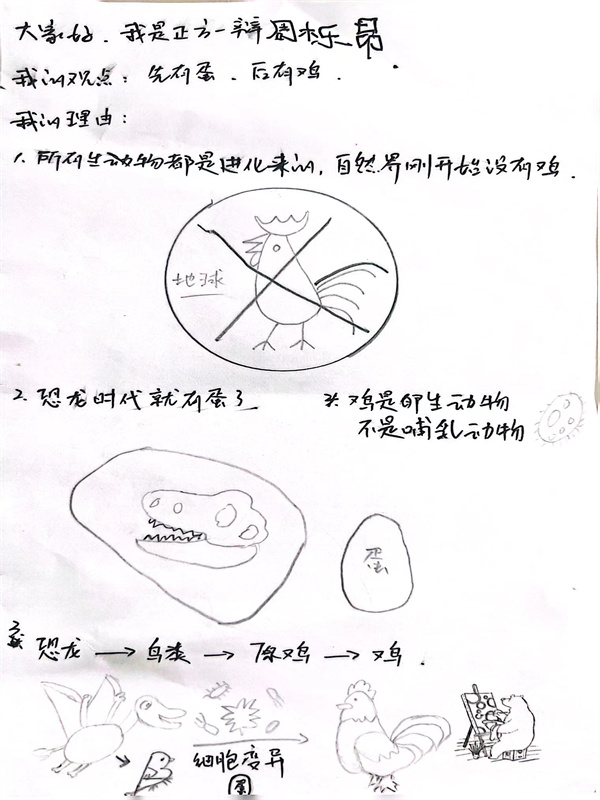 大家好，我是正方一辩周乐昂
我的观点：先有蛋，后有鸡．
我的理由：
1. 所有生动物都是进化来的，自然界刚开始没有鸡．
地球
2. 恐龙时代就有蛋了
3. 鸡是卵生动物
不是哺乳动物
蛋
恐龙→鸟类→原鸡→鸡．
细胞变异